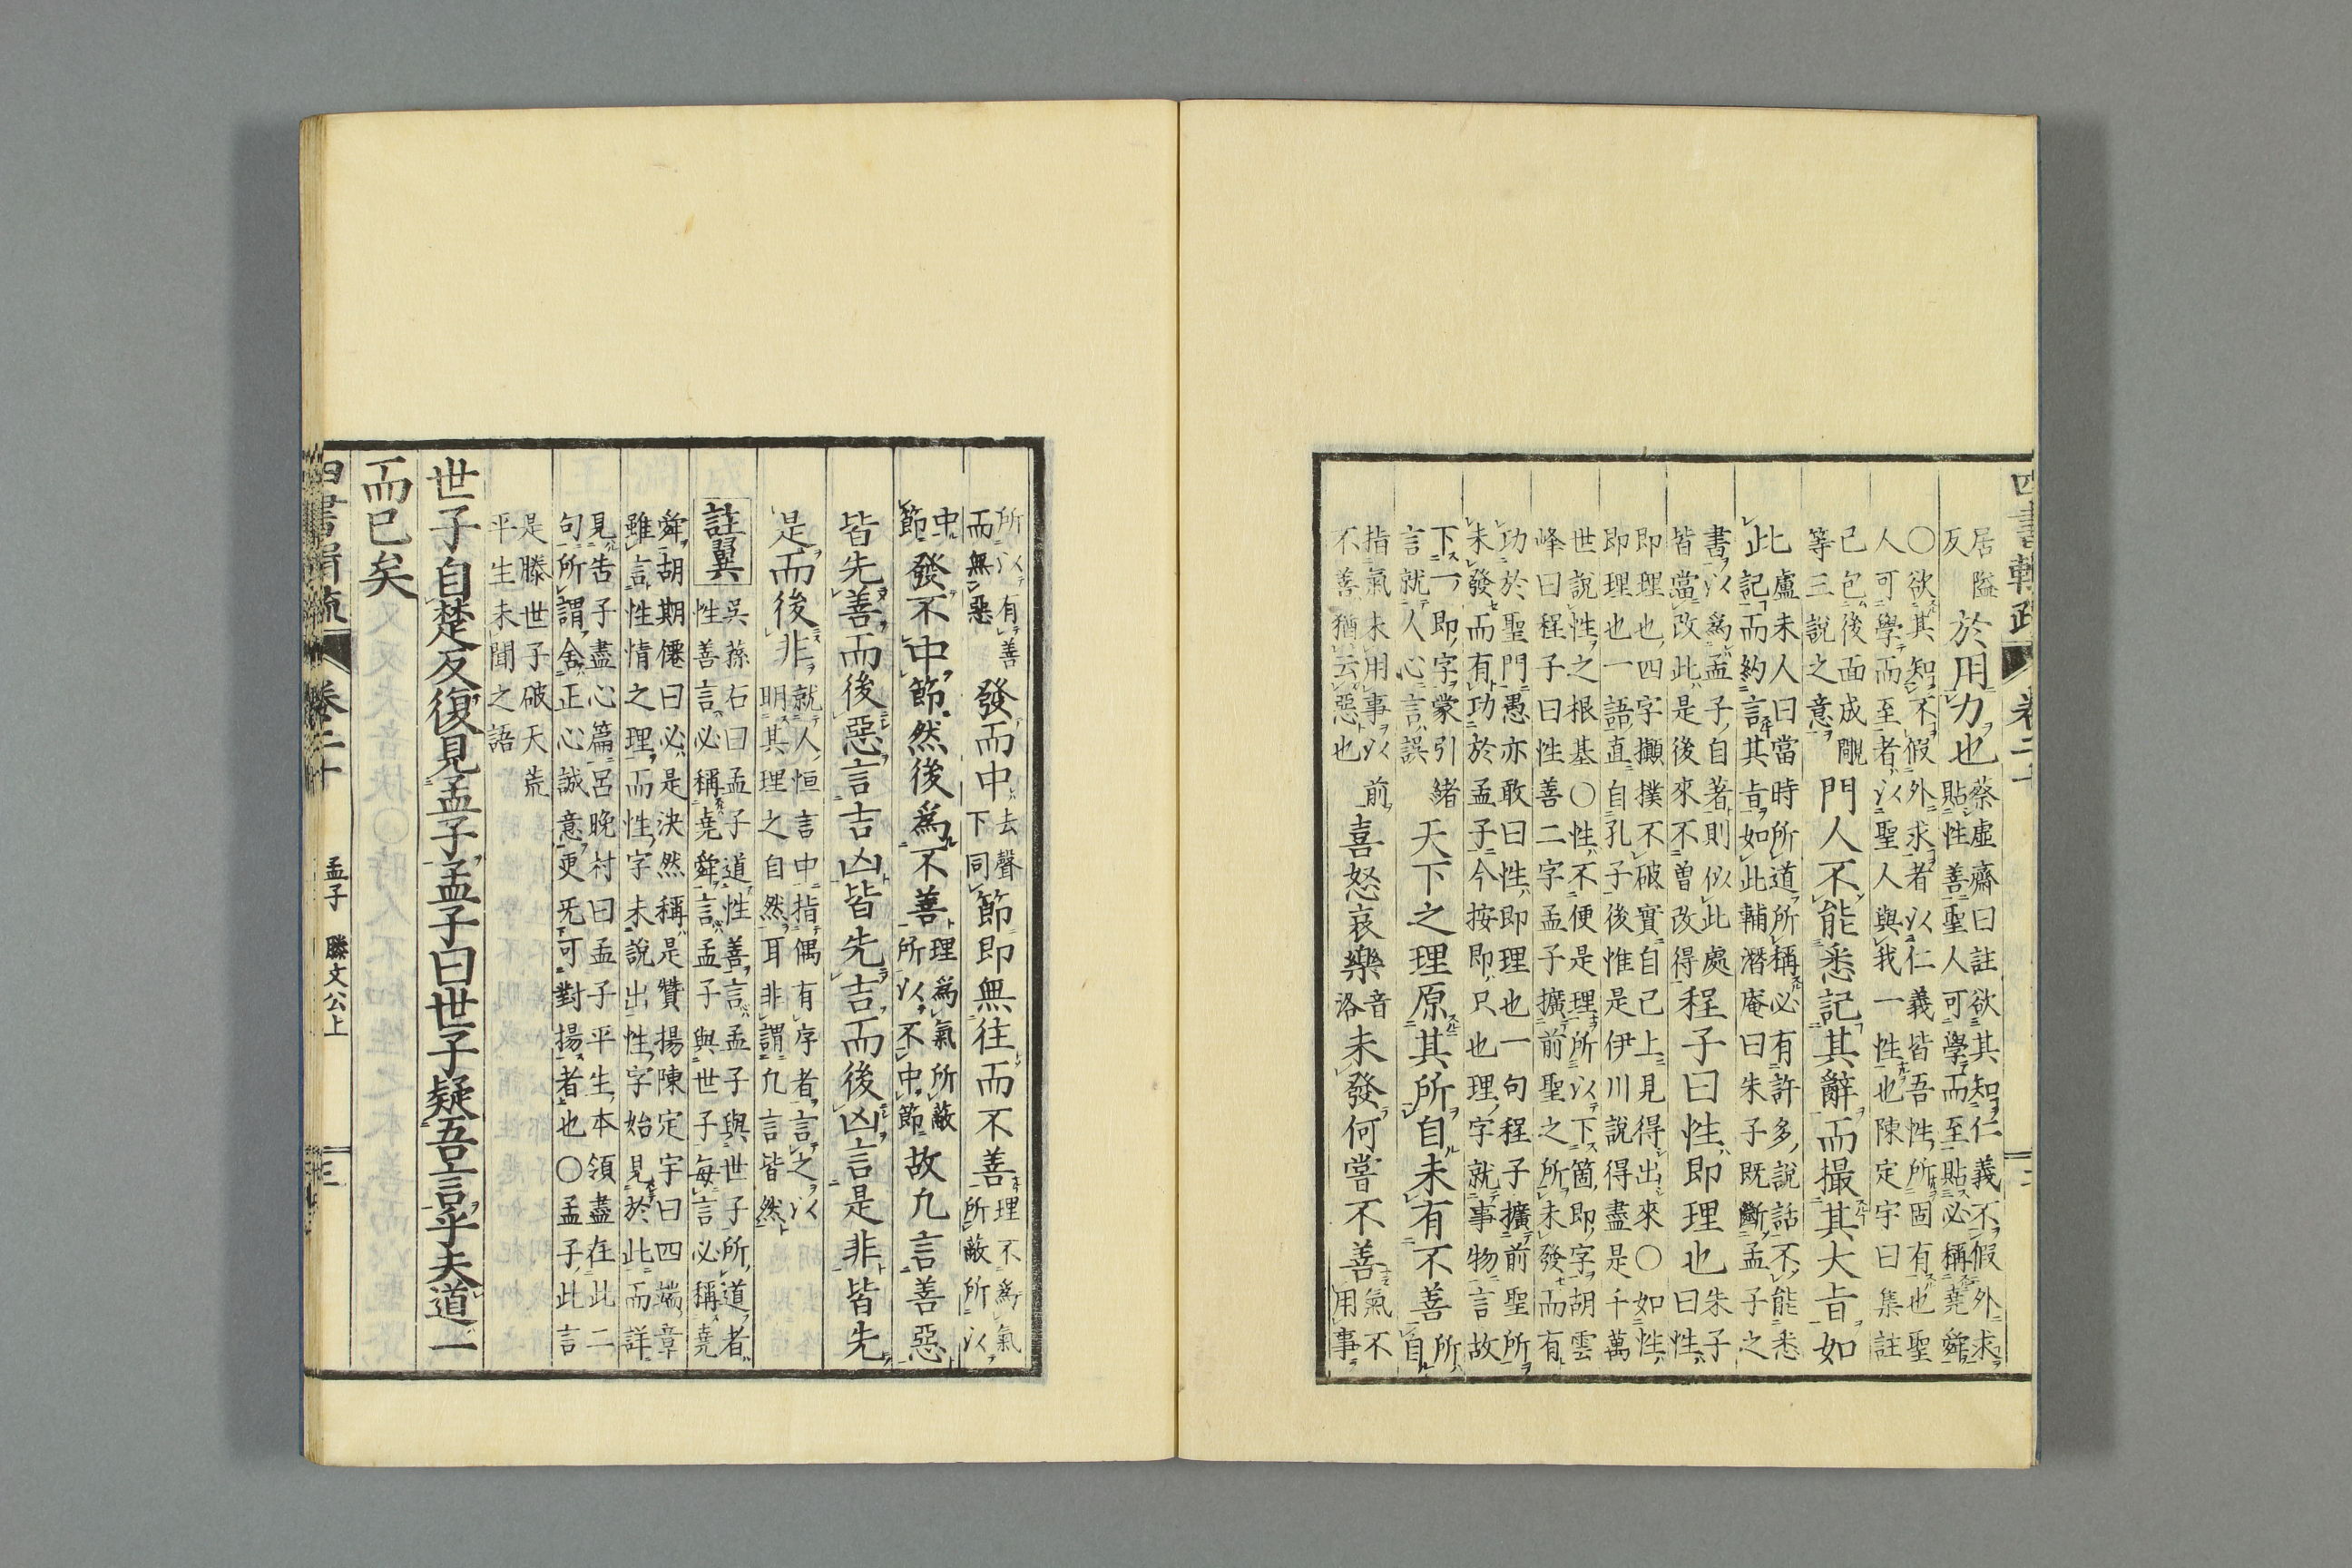 四書輯疏 卷二十 二
居隘
反
於用力也
蔡虛齋曰註欲其知仁義不假外求
貼性善聖人可學而至貼必稱堯舜
〇欲其知不假外求者以仁義皆吾性所固有也聖
人可學而至者以聖人與我一性也陳定宇曰集註
已包後面成覵
等三說之意
門人不能悉記其辭而撮其大旨如
此
盧未人曰當時所道所稱必有許多說話不能悉
記而約言其旨如此輔潛庵曰朱子既斷孟子之
書以爲孟子自著則似此處
皆當改此是後來不曾改得
程子曰性即理也
朱子
曰性
即理也四字攧撲不破實自己上見得出來〇如性
即理也一語直自孔子後惟是伊川說得盡是千萬
世說性之根基〇性不便是理所以下箇即字胡雲
峰曰程子曰性善二字孟子擴前聖之所未發而有
功於聖門愚亦敢曰性即理也一句程子擴前聖所
未發而有功於孟子今按即只也理字就事物言故
下一即字蒙引緒
言就人心言誤
天下之理原其所自未有不善
所
自
指氣未用事以前
不善猶云惡也
喜怒哀樂
音
洛
未發何嘗不善
氣不
用事
所以有善
而無惡
發而中
去聲
下同
節即無往而不善
理不爲氣
所蔽所以
中
節
發不中節然後爲不善
理爲氣所蔽
所以不中節
故凡言善惡
皆先善而後惡言吉凶皆先吉而後凶言是非皆先
是而後非
就人恒言中指偶有序者言之以
明其理之自然耳非謂凡言皆然
註翼
吳蓀右曰孟子道性善言孟子與世子所道者
性善言必稱堯舜言孟子與世子每言必稱堯
舜胡期僊曰必是決然稱是贊揚陳定宇曰四端章
雖言性情之理而性字未說出性字始見於此而詳
見告子盡心篇呂晚村曰孟子平生本領盡在此二
句所謂舍正心誠意更旡可對揚者也〇孟子此言
是滕世子破天荒
平生未聞之語
世子自楚反復見孟子孟子曰世子疑吾言乎夫道一
而已矣
四書輯疏 卷二十 孟子 滕文公上 三